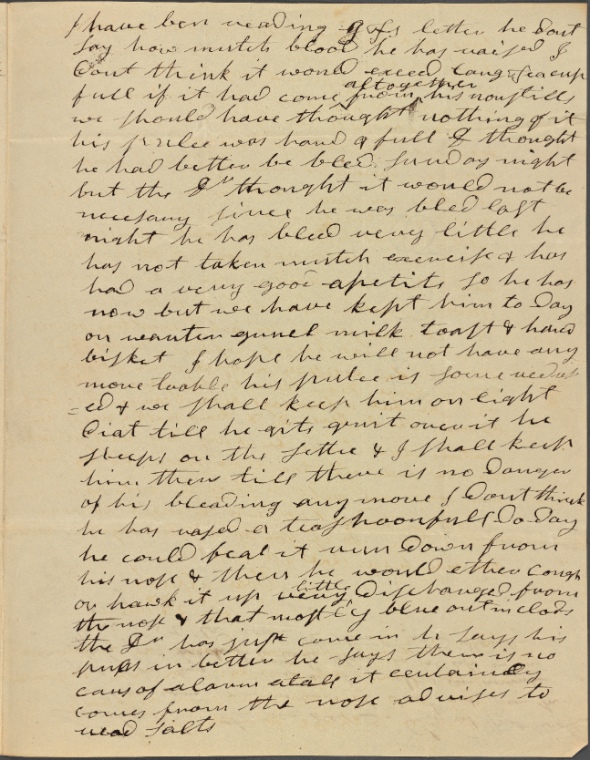 I have ben reading G s letter he dont
say how mutch blood he has raised I
dont think it would exceed a teacup
full if it had come altogether from his nostrills
we should have thought nothing of it
his pulce was hard & full & I thought
he had better be bled sunday night
but the Dr thought it would not be
necesary since he was bled last
night he has bleed very little he
has not taken mutch exercise & has
had a very good apetite so he has
now but we have kept him to day
on warter gruel milk toast & hard
bisket I hope he will not have any
more his pulce is some reduc
=ed & we shall keep him on light
Diat till he gits quit over it he
sleeps on the settee & I shall keep
him there till there is no danger
of his bleading any more I dont think
he has rased a teaspoonfull to day
he could feal it run down from
his nose & then he would ether cough
or hawk it up very little discharged from
the nose & that mostly blue out in clods
the Dr has just come in he says his
puls in better he says there is no
caus of alarm atall it certainly
comes from the nose advises to
 salts